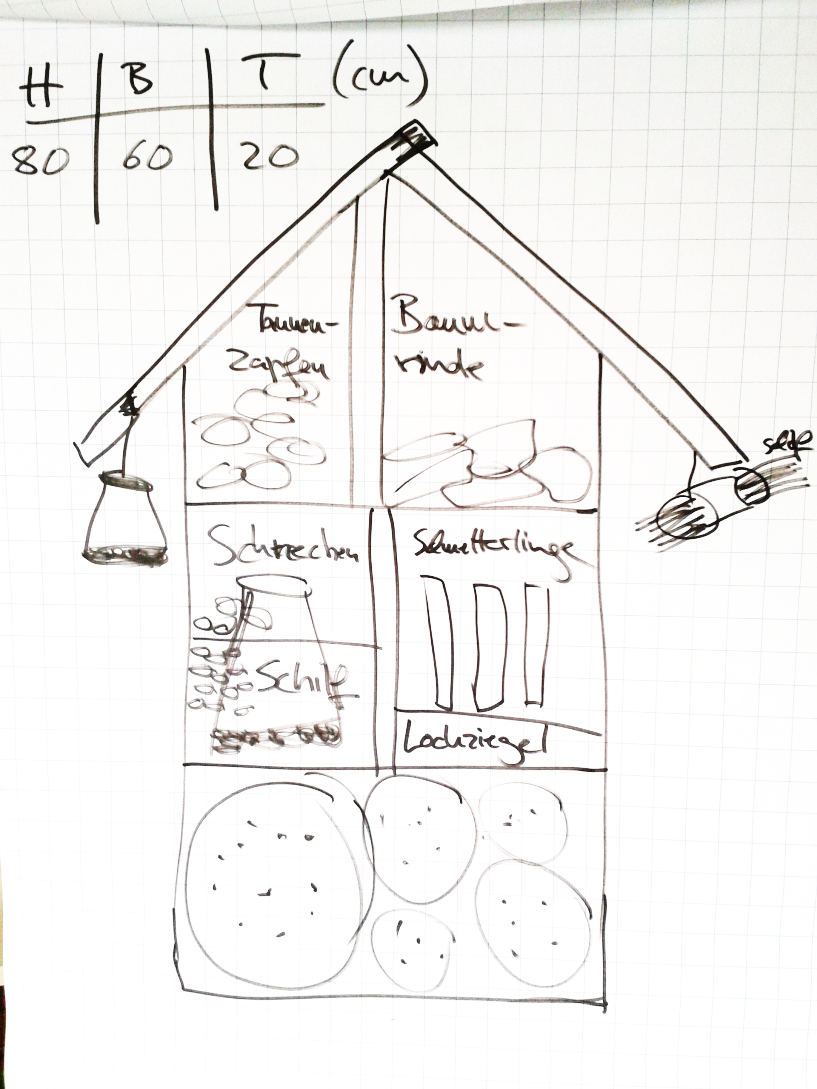 H B T (cm)
80 60 20
Tannen-
zapfen
Baum-
rinde
Schnecken
Schmetterlinge
Schilf
Lochziegel